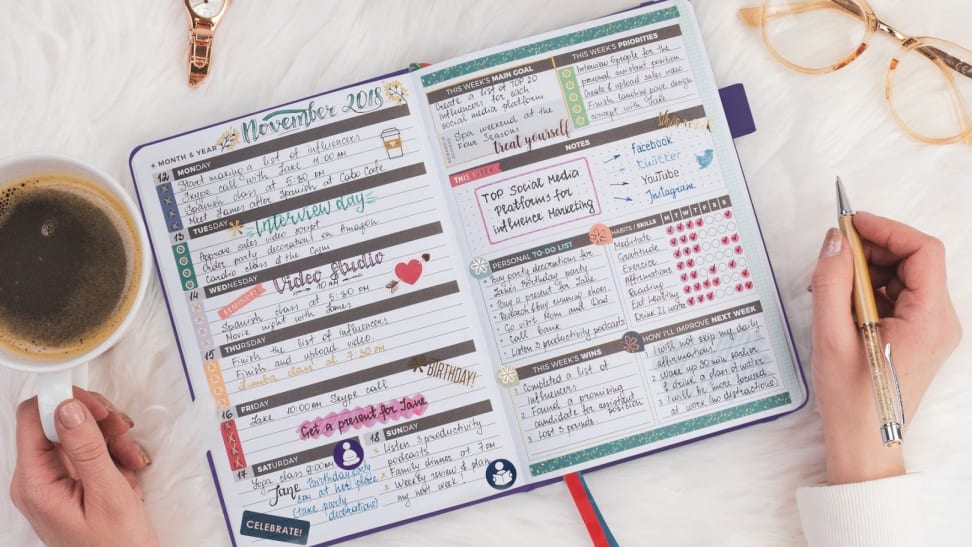 November 2018
& MONTH & YEAR
12 MONDAY
Start making a list of influencers
Skype call with Jake 11:00 AM
Spanish class at 5:30 PM
Meet James after Spanish at Cabo Cafe
13 TUESDAY
Interview day
Approve sales video script
Order party decorations on Amazon
Cardio class at the Gym
14 WEDNESDAY
REMINDER
Video Studio
10 AM
Spanish class at 5:30 PM
Movie night with James
15 THURSDAY
Finish the list of influencers
Finish and upload video
Zumba class at 7:30 PM
BIRTHDAY!
16 FRIDAY
Jake 10:00AM Skype call
Get a present for Jane
17 SATURDAY
Yoga class 8:00AM
Jane Birthday
at her place
(take party
decorations)
CELEBRATE!
18 SUNDAY
Listen 3 productivity
podcasts
Family dinner at 7PM
Weekly review & plan
my next week!
THIS WEEK'S MAIN GOAL
Create a list of TOP 20
influencers for each
social media platform
Spa weekend at the
Four Seasons
treat yourself
THIS WEEK'S PRIORITIES
Interview 5 people for the
personal assistant position
Create & upload sales video
Finish landing page design
concept with Jake
THIS WEEK
NOTES
TOP Social Media
Platforms for
influence Marketing
facebook
twitter
YouTube
Instagram
PERSONAL TO-DO LIST
Buy party decorations for
Jane's birthday party
Buy a present for Jane
Research & buy running shoes
Go visit Mom and Dad
Call bank
Listen 3 productivity podcasts
HABITS / SKILLS M T W T F S S
Meditate
Gratitude
Exercise
Affirmations
Reading
Eat healthy
Drink 2L water
THIS WEEK'S WINS
1 Completed a list of
influencers
2 Found a promising
candidate for assistant
position
3 Lost 3 pounds
HOW I'LL IMPROVE NEXT WEEK
1 I will not skip my daily
affirmations
2 Wake up 30 min earlier
& drink a glass of water
3 I will be more focused
at work (no distractions)